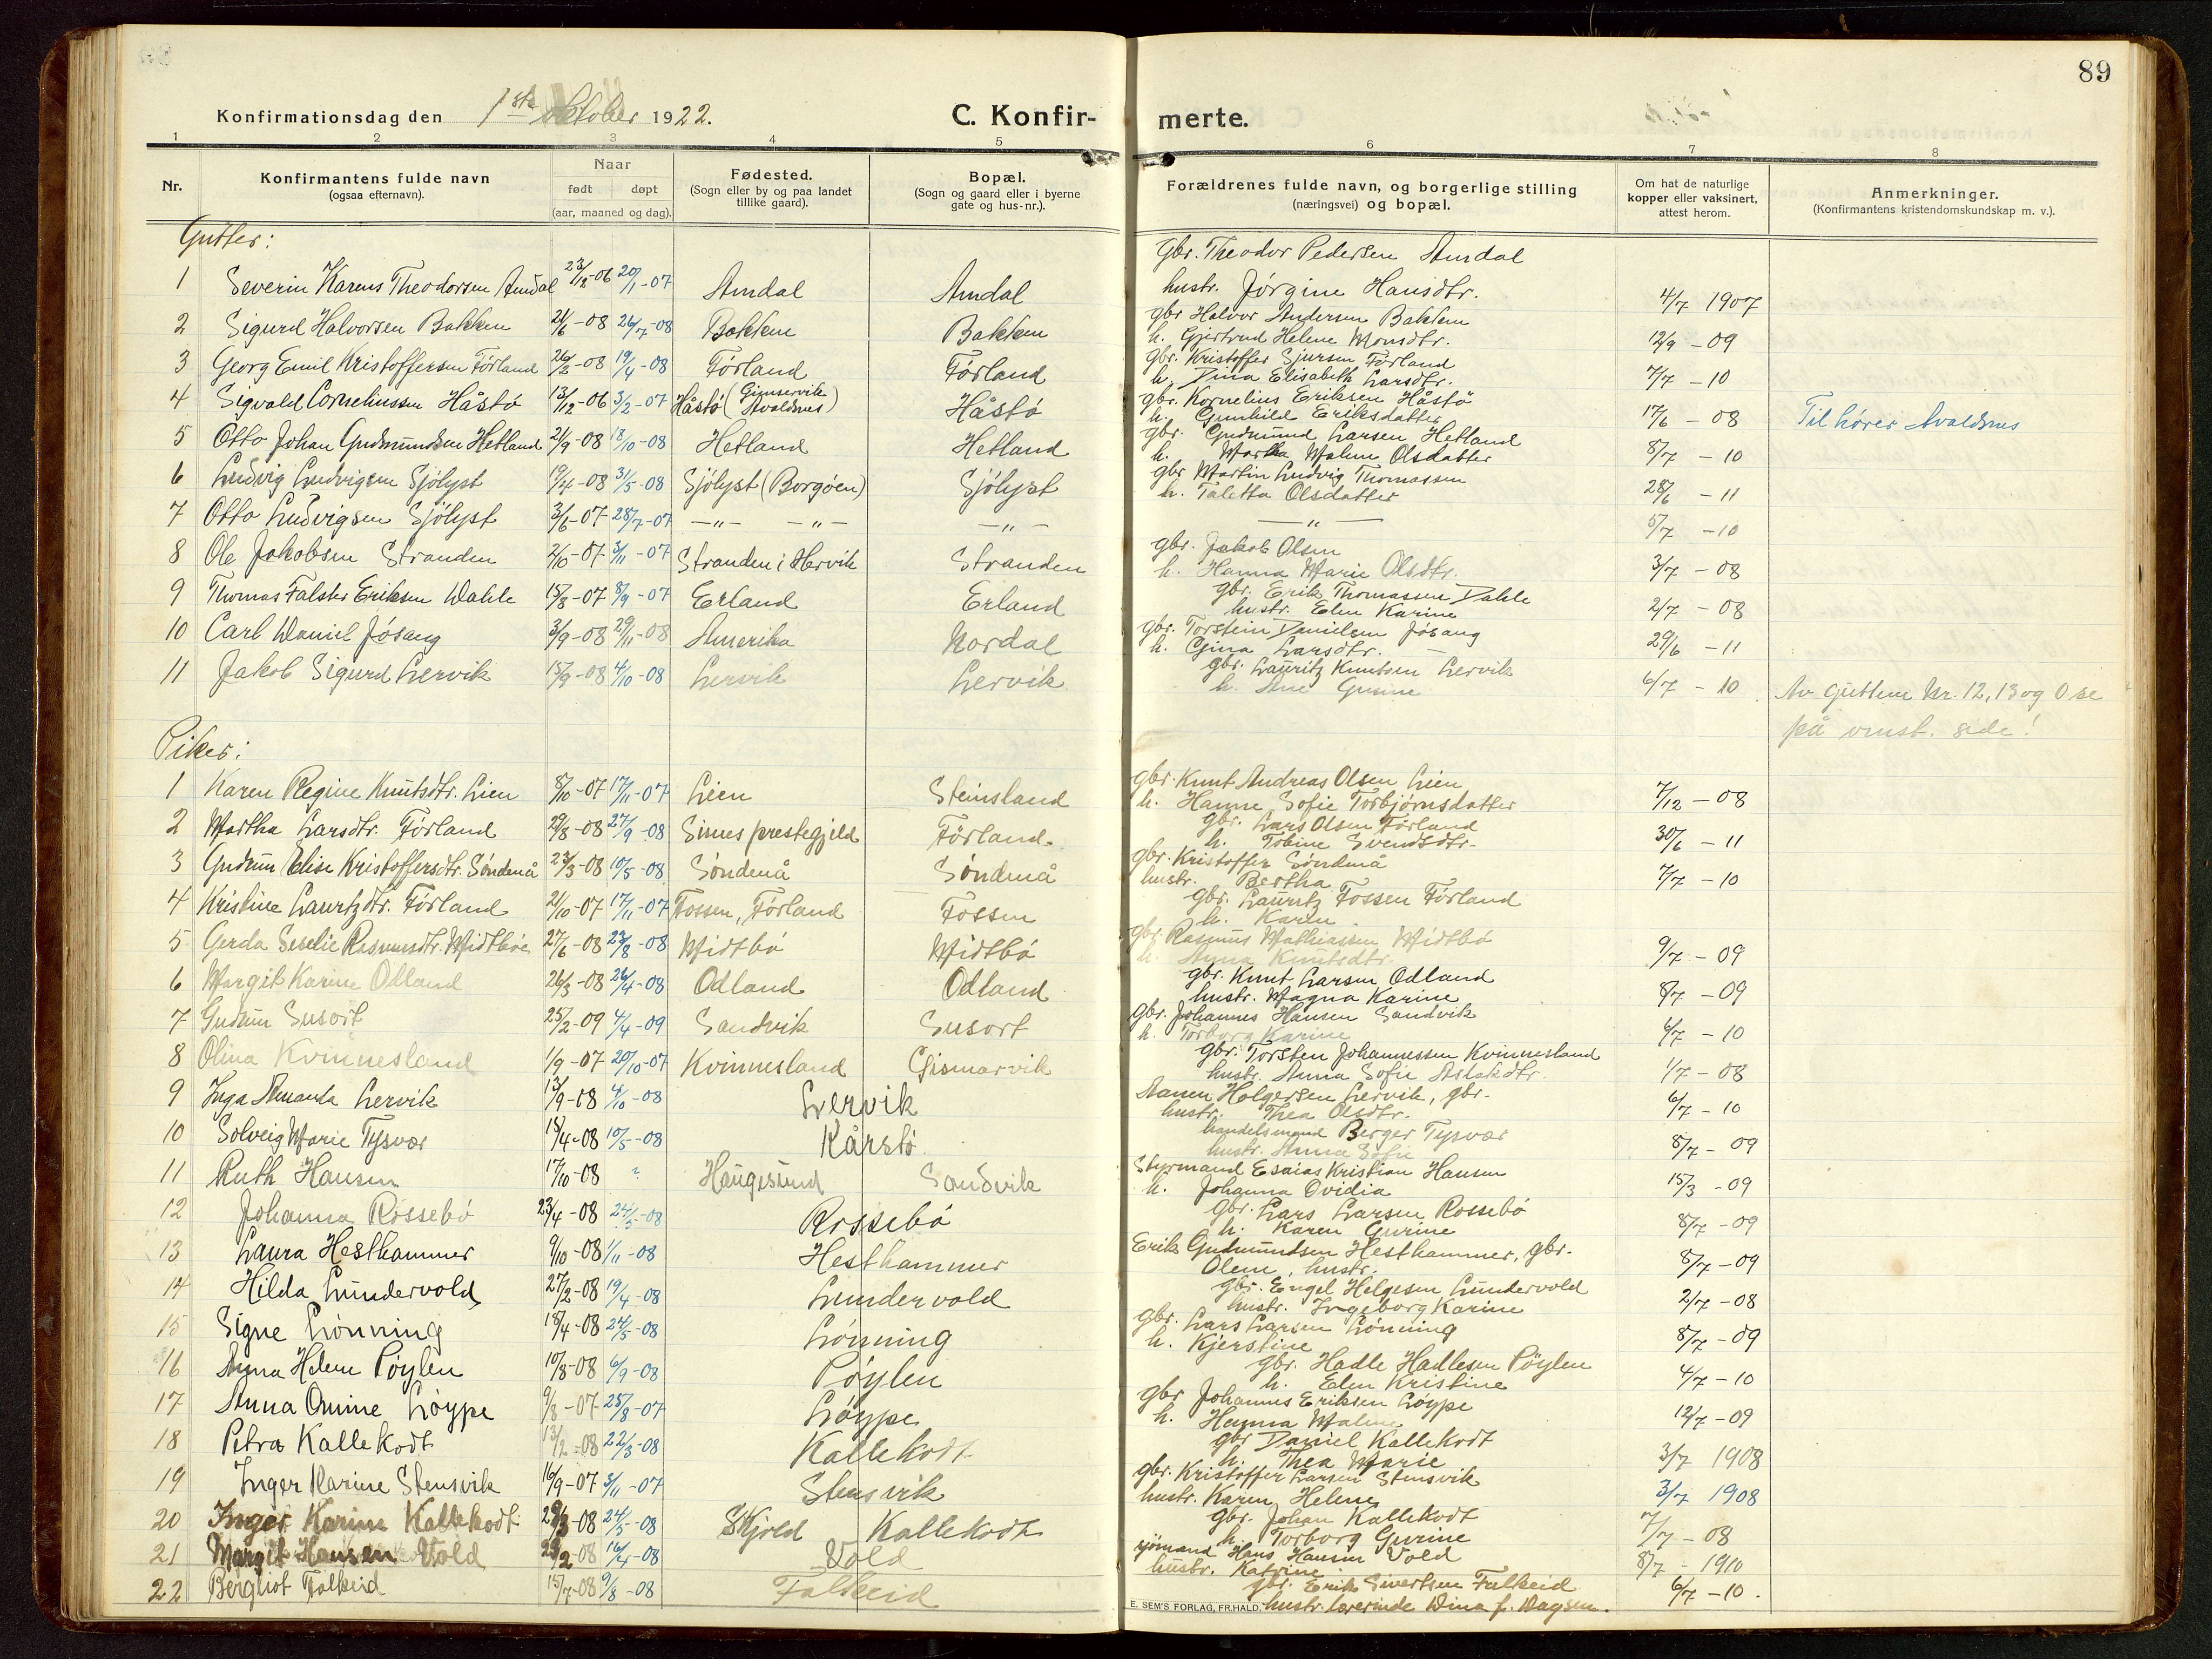 89
Konfirmationsdag den 1ste oktober 1922.
C. Konfir-
merte.
1 2 3 4 5 6 7 8
Nr.
Konfirmantens fulde navn
(ogsaa efternavn).
Naar
født døpt
(aar, maaned og dag).
Fødested.
(Sogn eller by og paa landet
tillike gaard).
Bopæl.
(Sogn og gaard eller i byerne
gate og hus-nr.).
Forældrenes fulde navn, og borgerlige stilling
(næringsvei) og bopæl.
Om hat de naturlige
kopper eller vaksinert,
attest herom.
Anmerkninger.
(Konfirmantens kristendomskundskap m. v.).
Gutter:
1 Severin Karens Theodorsen Amdal 23/12-06 20/1-07 Amdal Amdal gbr. Theodor Pedersen Amdal
hustr. Jørgine Hansdtr. 4/7 1907
2 Sigurd Halvorsen Bakken 21/6-08 26/7-08 Bakken Bakken gbr Halvor Andersen Bakken
h. Gjertrud Helene Monsdtr. 12/9 - 09
3 Georg Emil Kristoffersen Førland 26/2-08 19/4-08 Førland Førland gbr. Kristoffer Sjursen Førland
h. Dina Elisabeth Larsdtr. 7/7 - 10
4 Sigvald Corneliussen Håstø 13/12-06 3/2-07 Håstø (Gimservik Avaldsnes) Håstø gbr. Kornelius Eriksen Håstø
h. Gunhild Eriksdatter 17/6 - 08 Tilhører Avaldsnes
5 Otto Johan Gudmundsen Hetland 21/9-08 18/10-08 Hetland Hetland gbr. Gudmund Larsen Hetland
h. Marta Malene Olsdatter 8/7 - 10
6 Ludvig Ludvigsen Sjölyst 19/4-08 31/5-08 Sjölyst (Borgøen) Sjölyst gbr Martin Ludvig Thomassen
h. Taletta Olsdatter 28/6 - 11
7 Otto Ludvigsen Sjölyst 3/6-07 28/7-07 -"- -"- -"- -"- 5/7 - 10
8 Ole Jakobsen Stranden 2/10-07 3/11-07 Stranden i Hervik Stranden gbr. Jakob Olsen
h. Hanna Marie Olsdtr. 3/7 - 08
9 Thomas Falster Eriksen Dahle 15/8-07 8/9-07 Erland Erland gbr. Erik Thomassen Dahle
hustr. Elen Karine 2/7 - 08
10 Carl Daniel Jøsang 3/9-08 29/11-08 Amerika Nordal gbr. Torstein Danielsen Jøsang
h. Gina Larsdtr. 29/6 - 11
11 Jakob Sigurd Lervik 15/9-08 4/10-08 Lervik Lervik gbr. Lauritz Knutsen Lervik
h. Ane Gurine 6/7 - 10 Av guttene Nr. 12, 13 og 0 se
på venst. side!
Piker:
1 Karen Regine Knutsdtr. Lien 8/10-07 17/11-07 Lien Steinsland gbr. Knut Andreas Olsen Lien
h. Hanne Sofie Torbjørnsdatter 7/12 - 08
2 Martha Larsdtr. Førland 29/8-08 27/9-08 Sines prestegjeld Førland gbr. Lars Olsen Førland
h. Tobine Svendsdtr. 30/6 - 11
3 Gudrun Elise Kristoffersdtr. Søndenå 23/3-08 10/5-08 Søndenå Søndenå gbr. Kristoffer Søndenå
hustr. Bertha 7/7 - 10
4 Kristine Lauritzdtr. Førland 21/10-07 17/11-07 Fossen, Førland Fossen gbr. Lauritz Fossen Førland
h. Karen
5 Gerda Seselie Rasmusdtr. Midtbøe 27/6-08 23/8-08 Midtbø Midtbø gbr. Rasmus Mathiassen Midtbø
h. Anna Knutsdtr. 9/7 - 09
6 Margit Karine Odland 26/3-08 26/4-08 Odland Odland gbr. Knut Larsen Odland
hustr. Magna Karine 8/7 - 09
7 Gudrun Susort 25/2-09 4/4-09 Sandvik Susort gbr. Johannes Hansen Sandvik
h. Torborg Karine 6/7 - 10
8 Olina Kvinnesland 1/9-07 20/10-07 Kvinnesland Gismarvik gbr. Torsten Johannessen Kvinnesland
hustr. Anna Sofie Aslakdtr. 1/7 - 08
9 Inga Amanda Lervik 13/9-08 4/10-08 Lervik Aanen Holgersen Lervik, gbr.
hustr. Thea Olsdtr. 6/7 - 10
10 Solveig Marie Tysvær 15/4-08 10/5-08 Kårstø handelsmand Berger Tysvær
hustr. Anna Sofie 8/7 - 09
11 Ruth Hansen 17/10-08 ? Haugesund Sandvik Styrmand Esaias Kristian Hansen
h. Johanna Ovidia 15/3 - 09
12 Johanna Rossebø 23/4-08 24/5-08 Rossebø gbr. Lars Larsen Rossebø
h. Karen Gurine 8/7 - 09
13 Laura Hesthammer 9/10-08 1/11-08 Hesthammer Erik Gudmundsen Hesthammer, gbr.
Olene, hustr. 8/7 - 09
14 Hilda Lundervold 27/2-08 19/4-08 Lundervold gbr. Engel Helgesen Lundervold
hustr. Ingeborg Karine 2/7 - 08
15 Signe Lønning 18/4-08 24/5-08 Lønning gbr. Lars Larsen Lønning
h. Kjerstine 8/7 - 09
16 Anna Helene Pøylen 10/8-08 6/9-08 Pøylen gbr. Hadle Hadlesen Pøylen
h. Elen Kristine 4/7 - 10
17 Anna Omine Løype 9/8-07 25/8-07 Løype gbr Johannes Eriksen Løype
h. Hanna Malene 12/7 - 09
18 Petra Kallekodt 13/2-08 22/3-08 Kallekodt gbr Daniel Kallekodt
h. Thea Marie 3/7 1908
19 Inger Karine Stensvik 16/9-07 3/11-07 Stensvik gbr. Kristoffer Larsen Stensvik
hustr. Karen Helene 3/7 1908
20 Inger Karine Kallekodt 29/3-08 24/5-08 Skjold Kallekodt gbr. Johan Kallekodt
h. Torborg Gurine 7/7 - 08
21 Margit Hansen Vold 23/2-08 16/4-08 Vold Hans Hansen Vold
hustr. Katrine 8/7 - 1910
22 Bergliot Falkeid 15/7-08 9/8-08 Falkeid gbr. Erik Sivertsen Falkeid
hustr. lærerinde Dina f. Dagsen. 6/7 - 10.
E. SEM'S FORLAG, FR.HALD.